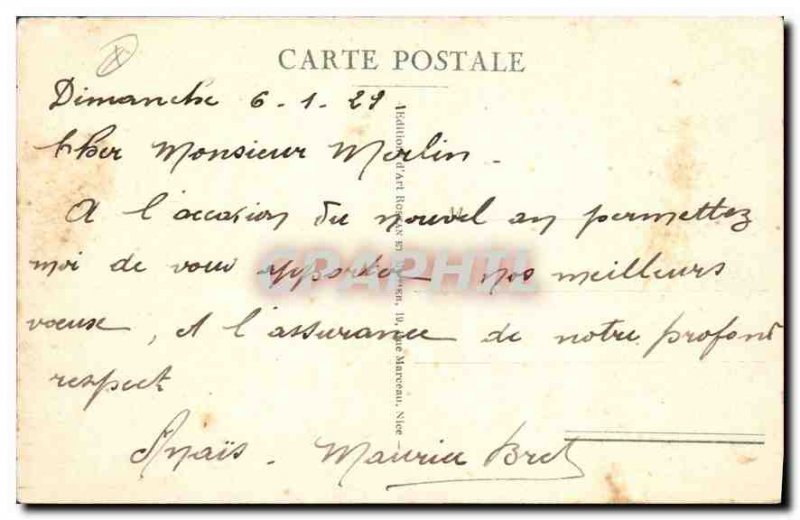 CARTE POSTALE
Dimanche 6-1-29
Cher Monsieur Merlin.
A l'occasion du nouvel an permettez
moi de vous apporter nos meilleurs
voeux, et l'assurance de notre profond
respect
Anaïs. Maurice Bret
Editions d'Art 19, Rue Marceau, Nice